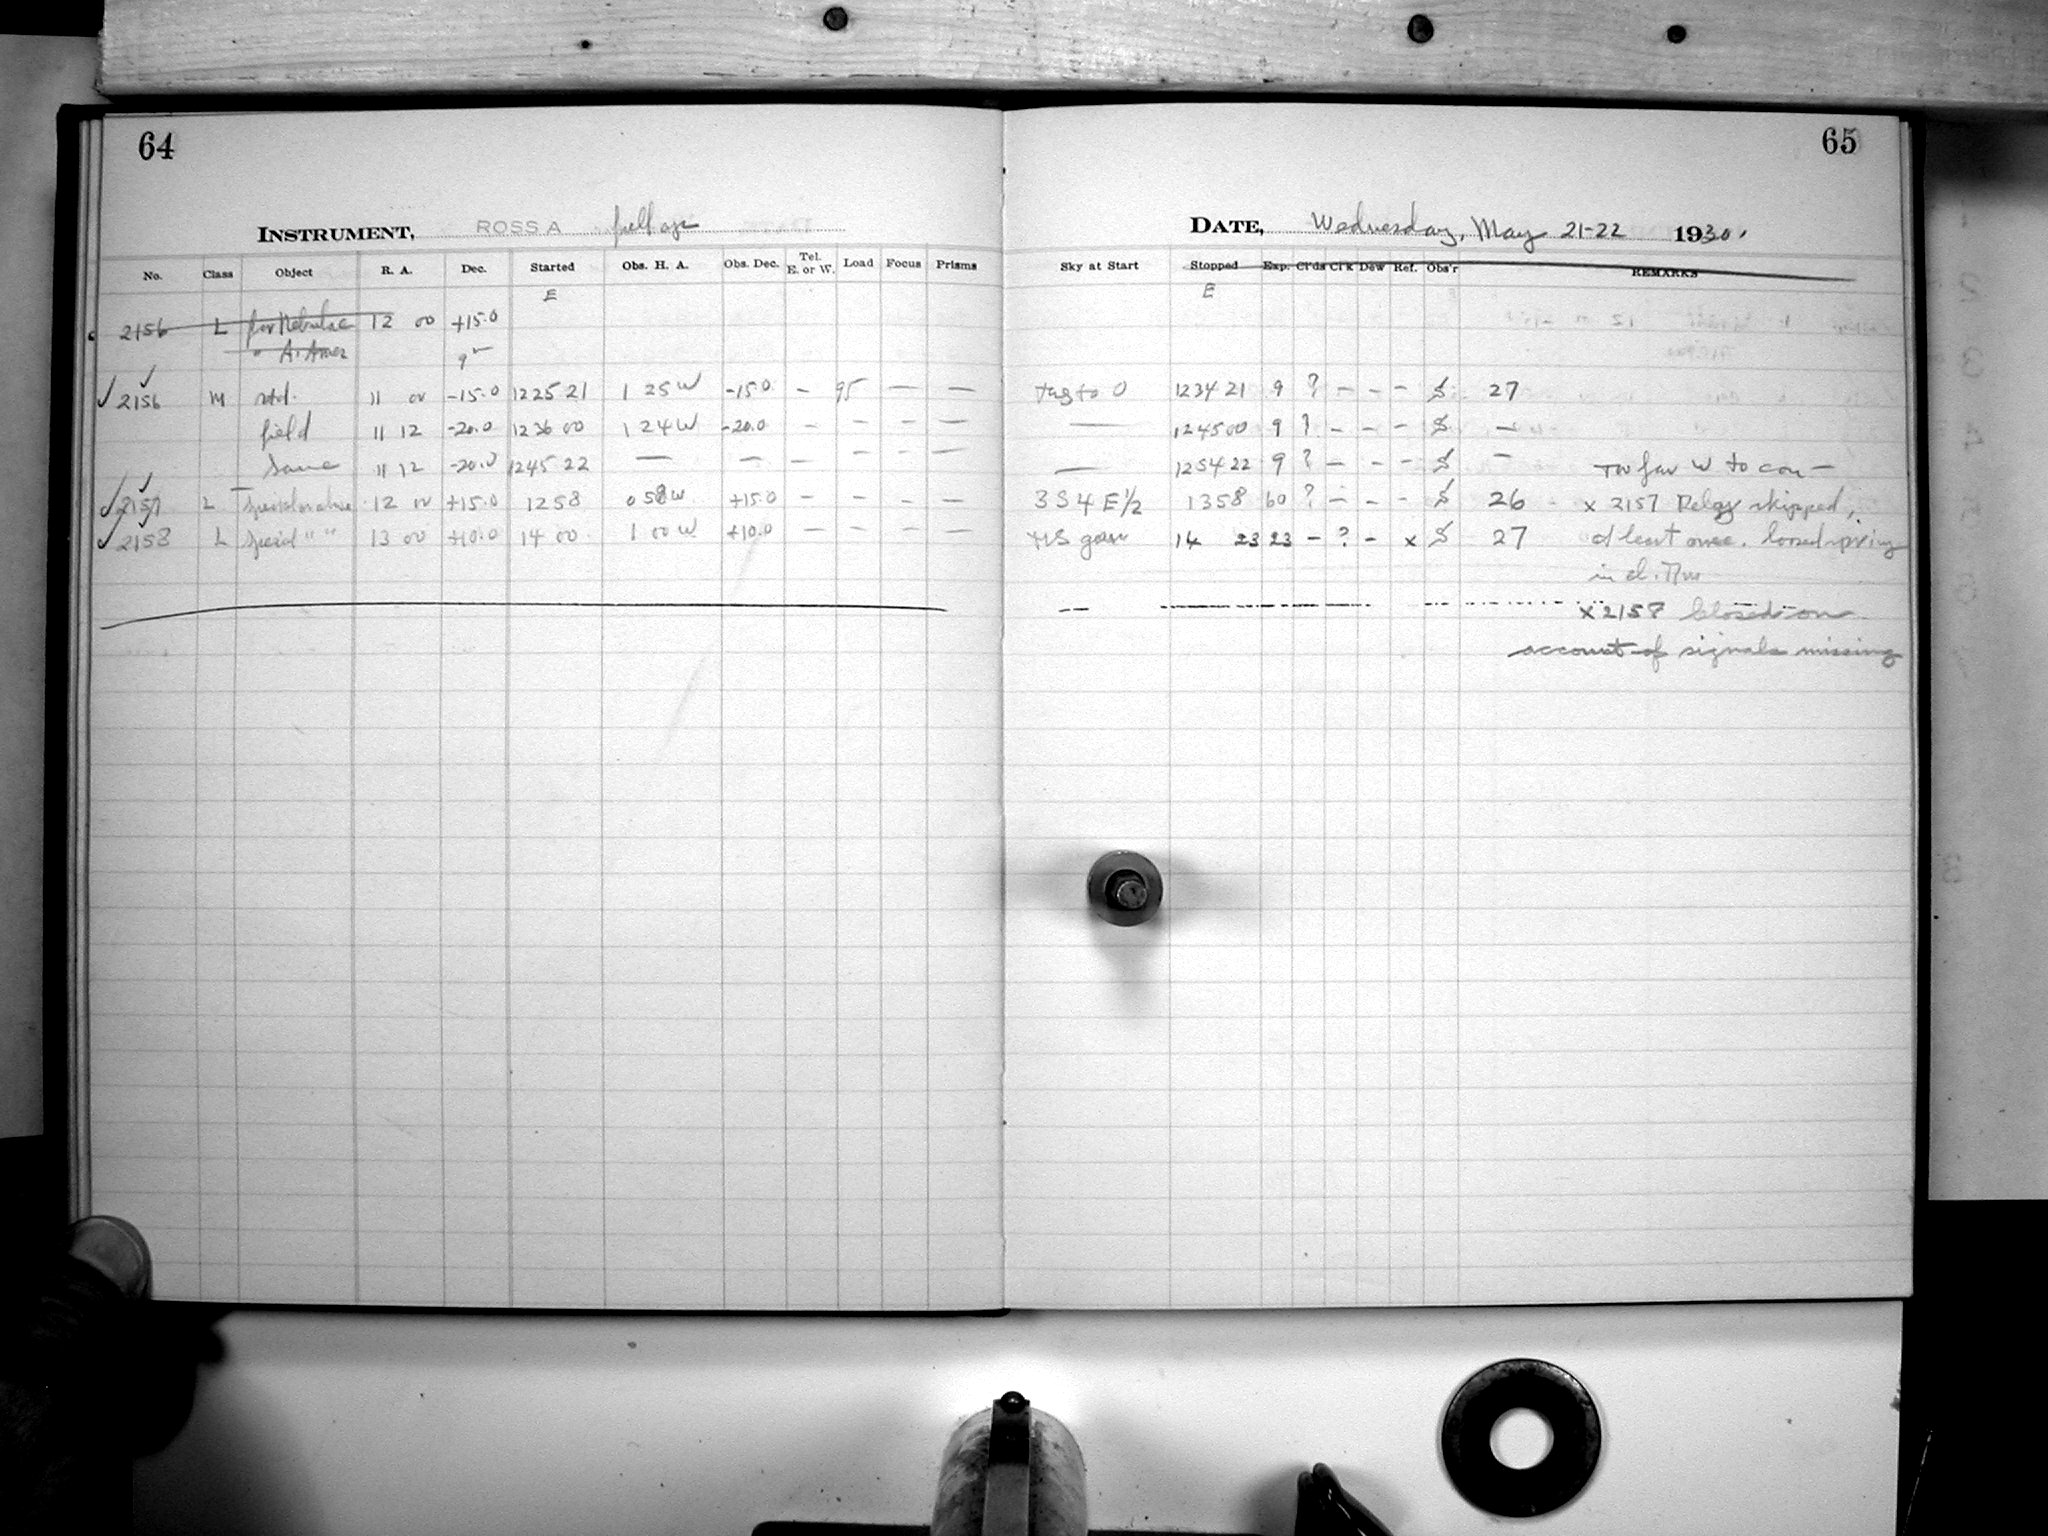 64
INSTRUMENT, ROSS A full ap
No. Class Object R. A. Dec. Started Obs. H. A. Obs. Dec. Tel. E. or W. Load Focus Prisms
E
2156 L for Nebulae 12 00 +15.0
" A.
2156 M std. 11 00 -15.0 12 25 21 1 25 W -15.0 - 95 — —
field 11 12 -20.0 12 36 00 1 24 W -20.0 - - - —
Same 11 12 -20.0 12 45 22 — — — - - —
2157 L 12 00 +15.0 12 58 0 58 W +15.0 - - - —
2158 L " " 13 00 +10.0 14 00 1 00 W +10.0 — — — —
65
DATE, Wednesday, May 21-22 1930.
Sky at Start Stopped Exp. Cl'ds Cl'k Dew Ref. Obs'r REMARKS
E
to 0 12 34 21 9 ? - - - S 27
— 12 45 00 9 ? - - - S —
— 12 54 22 9 ? - - - S - Too far W to con —
3 S 4 E 1/2 13 58 60 ? - - - S 26 x 2157 Relay skipped,
14 23 23 - ? - x S 27 at least once. loosed spring
in
x 2158 Closed on
account of signals missing